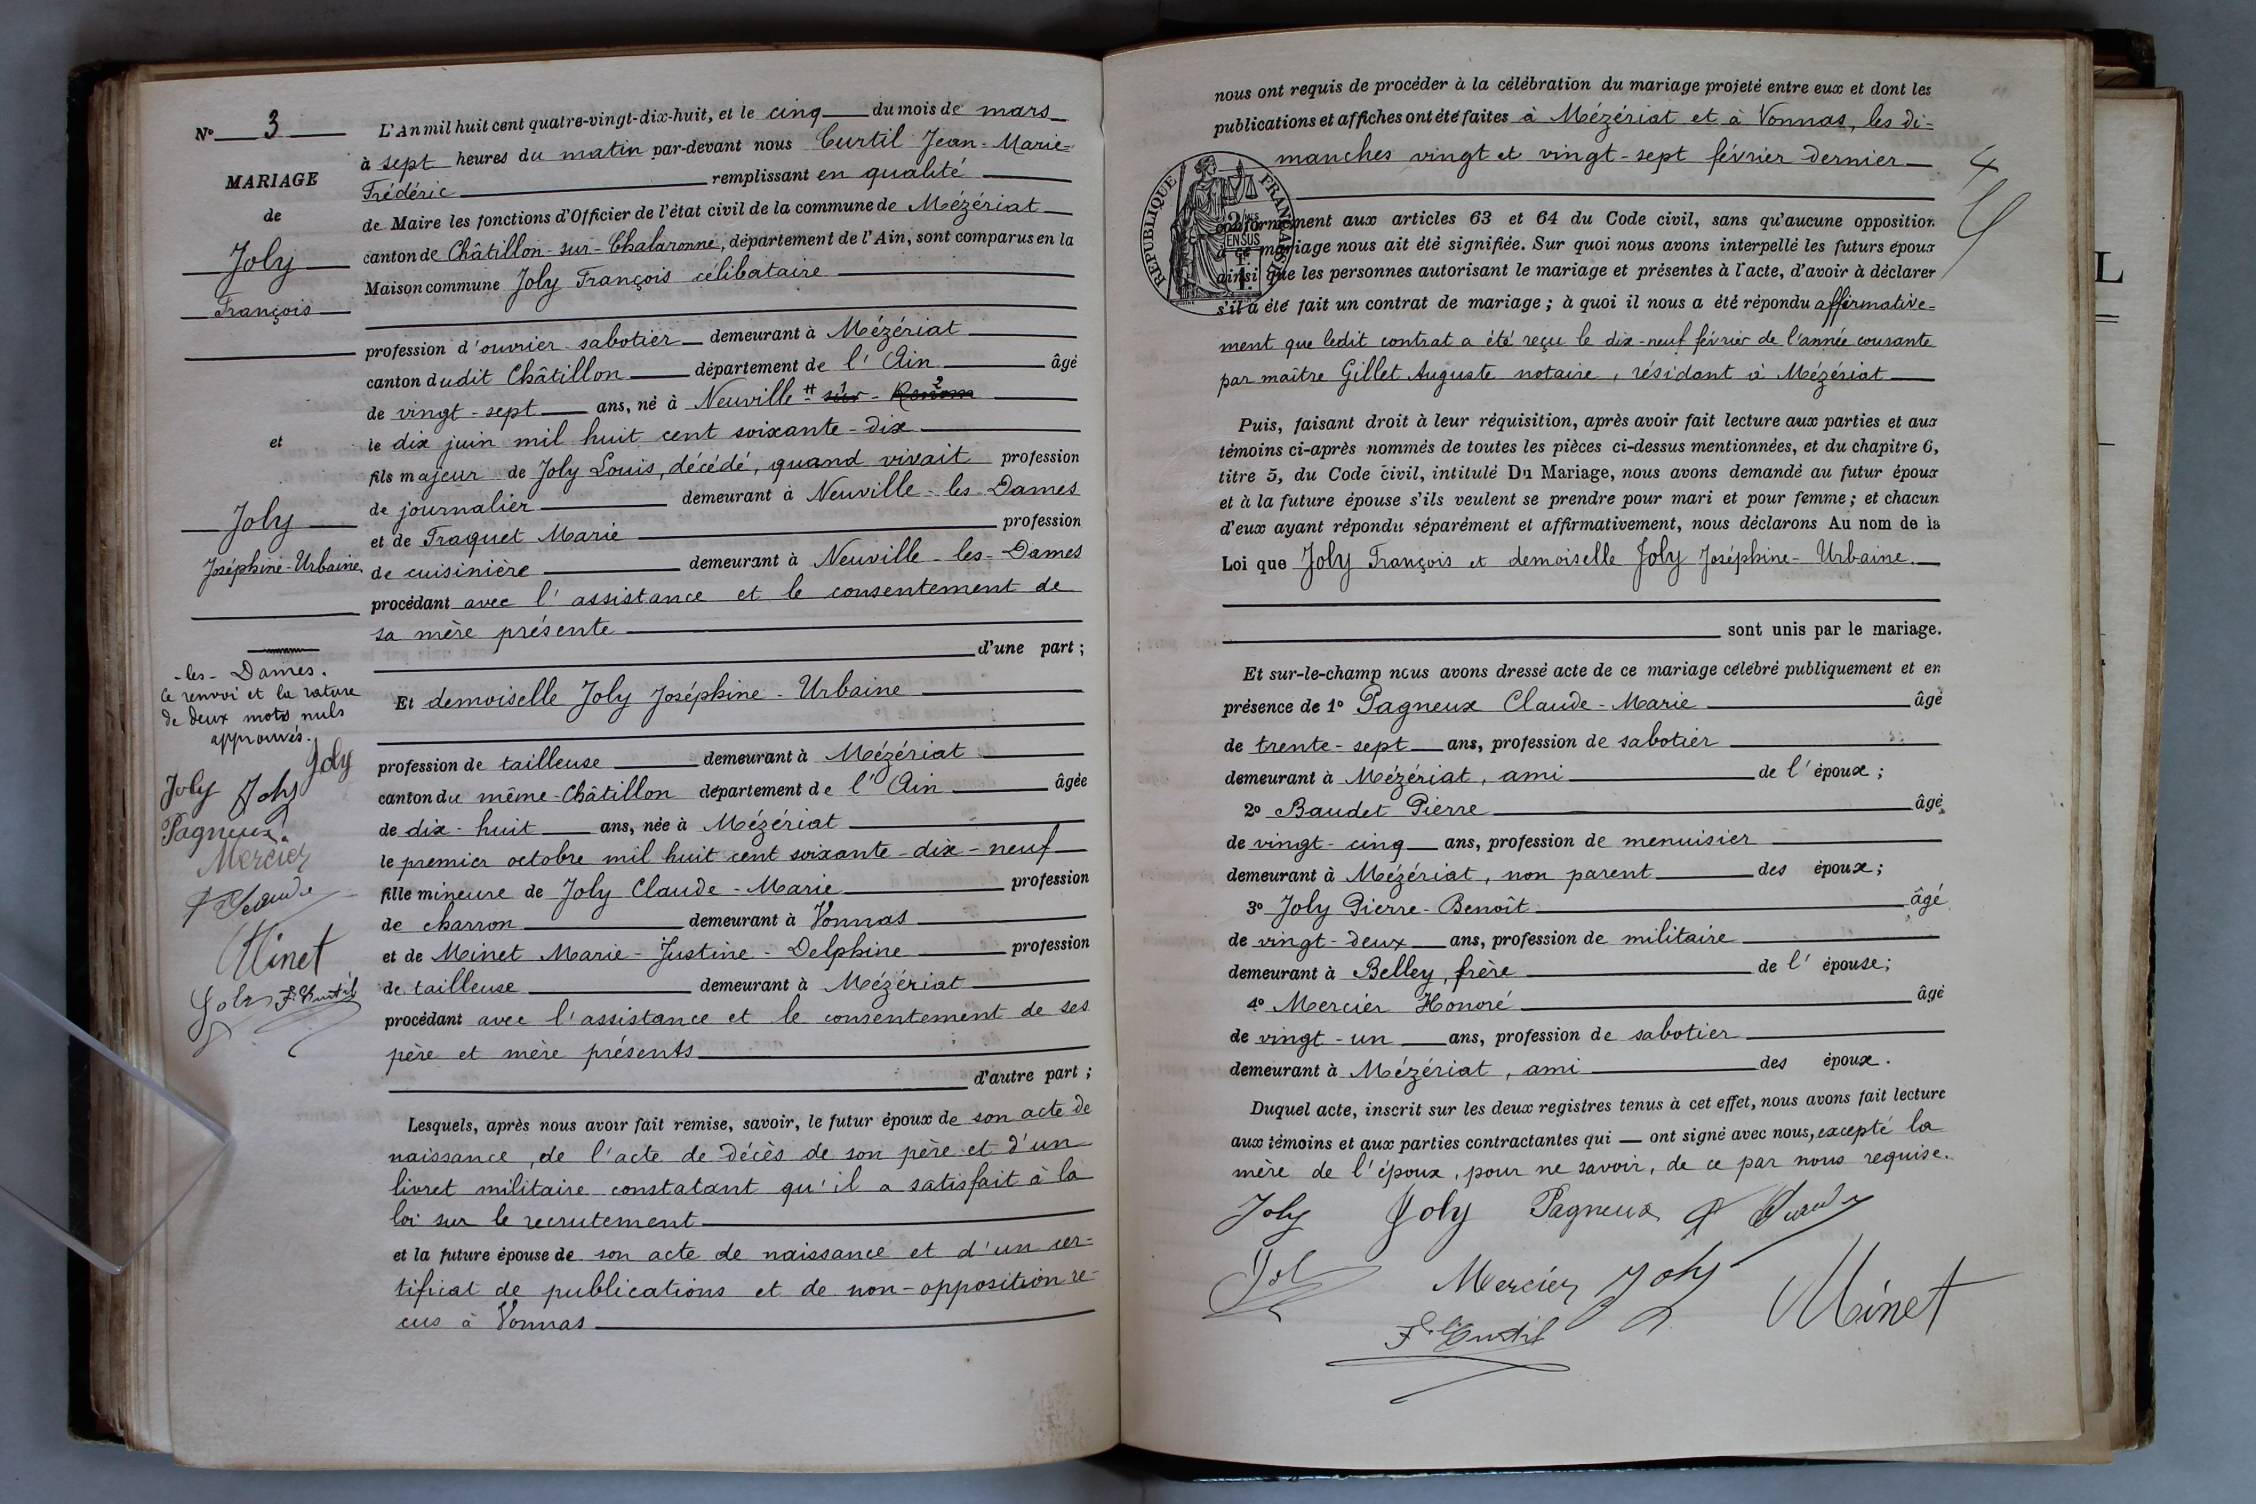 N° 3
MARIAGE
de
Joly
François
et
Joly
Joséphine-Urbaine
-les-Dames.
Ce renvoi et la rature
de deux mots nuls
approuvés.
Joly
Joly Joly
Pagneux
Mercier
Minet
Joly F. Curtil
L'An mil huit cent quatre-vingt-dix-huit, et le cinq du mois de mars
à sept heures du matin par-devant nous Curtil Jean-Marie-
Frédéric remplissant en qualité
de Maire les fonctions d'Officier de l'état civil de la commune de Mézériat
canton de Châtillon-sur-Chalaronne, département de l'Ain, sont comparus en la
Maison commune Joly François célibataire
profession d'ouvrier sabotier demeurant à Mézériat
canton dudit Châtillon département de l'Ain âgé
de vingt-sept ans, né à Neuville # sur - Renom
le dix juin mil huit cent soixante-dix
fils majeur de Joly Louis, décédé, quand vivait profession
de journalier demeurant à Neuville-les-Dames
et de Traquet Marie profession
de cuisinière demeurant à Neuville-les-Dames
procédant avec l'assistance et le consentement de
sa mère présente
d'une part ;
Et demoiselle Joly Joséphine-Urbaine
profession de tailleuse demeurant à Mézériat
canton du même Châtillon département de l'Ain âgée
de dix-huit ans, née à Mézériat
le premier octobre mil huit cent soixante-dix-neuf
fille mineure de Joly Claude-Marie profession
de charron demeurant à Vonnas
et de Minet Marie-Justine-Delphine profession
de tailleuse demeurant à Mézériat
procédant avec l'assistance et le consentement de ses
père et mère présents
d'autre part ;
Lesquels, après nous avoir fait remise, savoir, le futur époux de son acte de
naissance, de l'acte de décès de son père et d'un
livret militaire constatant qu'il a satisfait à la
loi sur le recrutement
et la future épouse de son acte de naissance et d'un cer-
tificat de publications et de non-opposition re-
cus à Vonnas
nous ont requis de procéder à la célébration du mariage projeté entre eux et dont les
publications et affiches ont été faites à Mézériat et à Vonnas, les di-
manches vingt et vingt-sept février dernier
4
RÉPUBLIQUE FRANÇAISE
conformément aux articles 63 et 64 du Code civil, sans qu'aucune opposition
à ce mariage nous ait été signifiée. Sur quoi nous avons interpellé les futurs époux
ainsi que les personnes autorisant le mariage et présentes à l'acte, d'avoir à déclarer
s'il a été fait un contrat de mariage ; à quoi il nous a été répondu affirmative-
ment que ledit contrat a été reçu le dix-neuf février de l'année courante
par maître Gillet Auguste notaire, résidant à Mézériat
Puis, faisant droit à leur réquisition, après avoir fait lecture aux parties et aux
témoins ci-après nommés de toutes les pièces ci-dessus mentionnées, et du chapitre 6,
titre 5, du Code civil, intitulé Du Mariage, nous avons demandé au futur époux
et à la future épouse s'ils veulent se prendre pour mari et pour femme ; et chacun
d'eux ayant répondu séparément et affirmativement, nous déclarons Au nom de la
Loi que Joly François et demoiselle Joly Joséphine-Urbaine.
sont unis par le mariage.
Et sur-le-champ nous avons dressé acte de ce mariage célébré publiquement et en
présence de 1° Pagneux Claude-Marie âgé
de trente-sept ans, profession de sabotier
demeurant à Mézériat, ami de l'époux ;
2° Baudet Pierre âgé
de vingt-cinq ans, profession de menuisier
demeurant à Mézériat, non parent des époux ;
3° Joly Pierre-Benoît âgé
de vingt-deux ans, profession de militaire
demeurant à Belley, frère de l'épouse ;
4° Mercier Honoré âgé
de vingt-un ans, profession de sabotier
demeurant à Mézériat, ami des époux.
Duquel acte, inscrit sur les deux registres tenus à cet effet, nous avons fait lecture
aux témoins et aux parties contractantes qui ont signé avec nous, excepté la
mère de l'époux, pour ne savoir, de ce par nous requise.
Joly Joly Pagneux
Mercier Joly Minet
F. Curtil
L